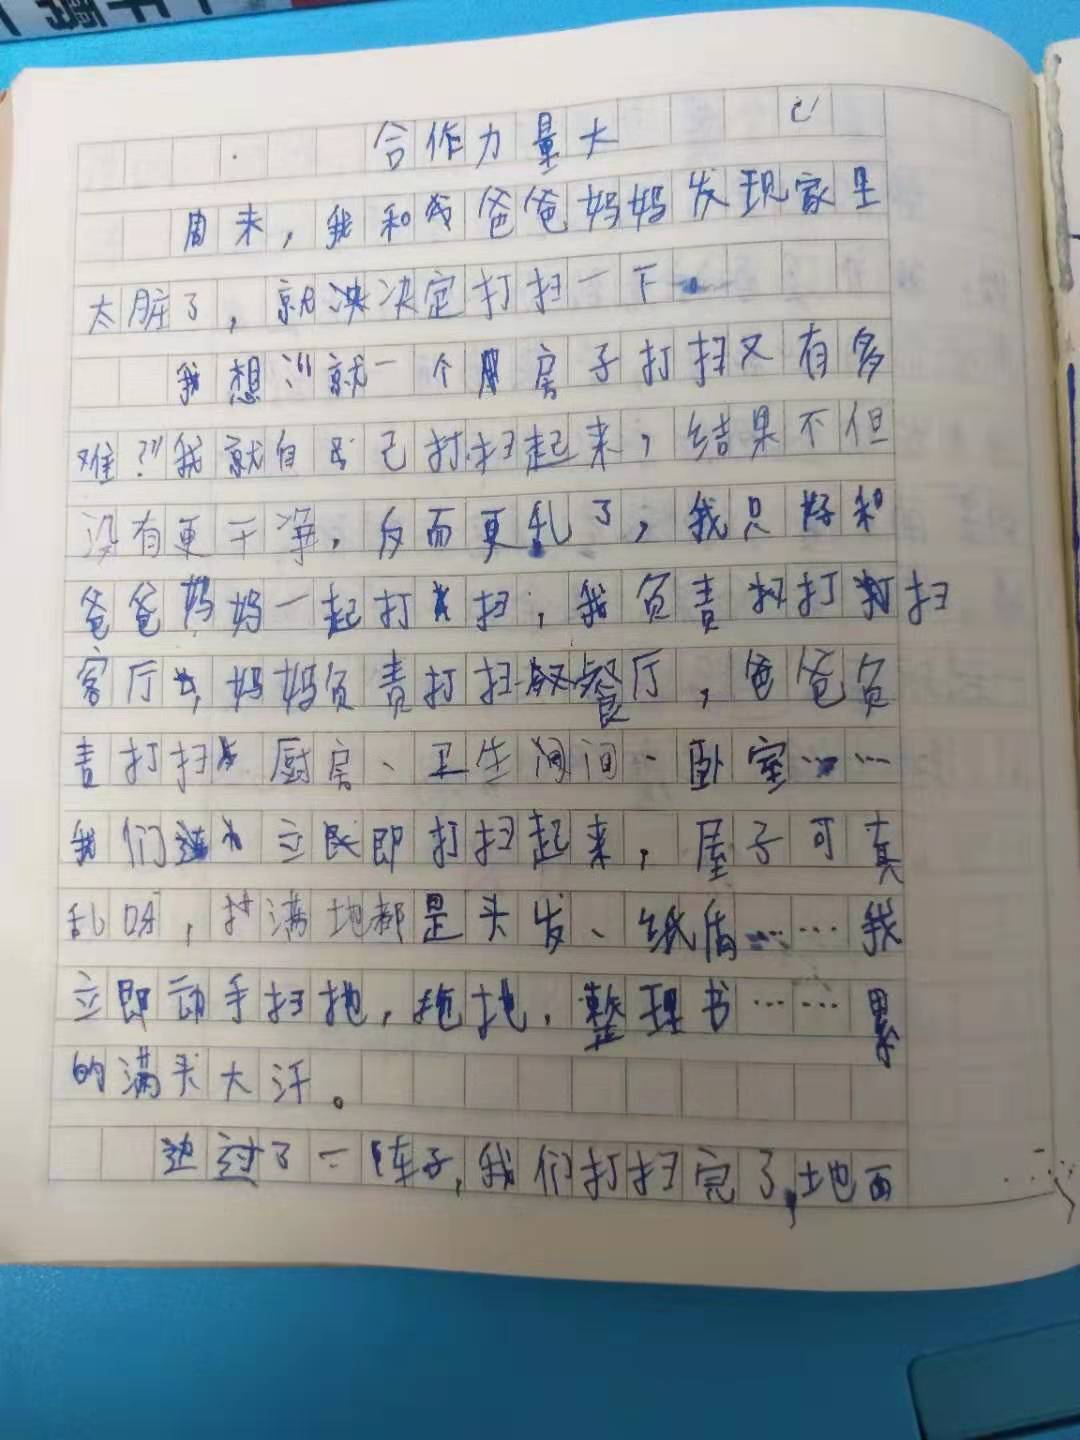 合作力量大
周末，我和爸爸妈妈发现家里
太脏了，就决定打扫一下。
我想：“就一个房子打扫又有多
难？”我就自己打扫起来，结果不但
没有更干净，反而更乱了，我只好和
爸爸妈妈一起打扫，我负责打扫
客厅，妈妈负责打扫餐厅，爸爸负
责打扫厨房、卫生间、卧室……
我们立即打扫起来，屋子可真
乱呀，满地都是头发、纸屑……我
立即动手扫地，拖地，整理书……累
的满头大汗。
过了一阵子，我们打扫完了，地面